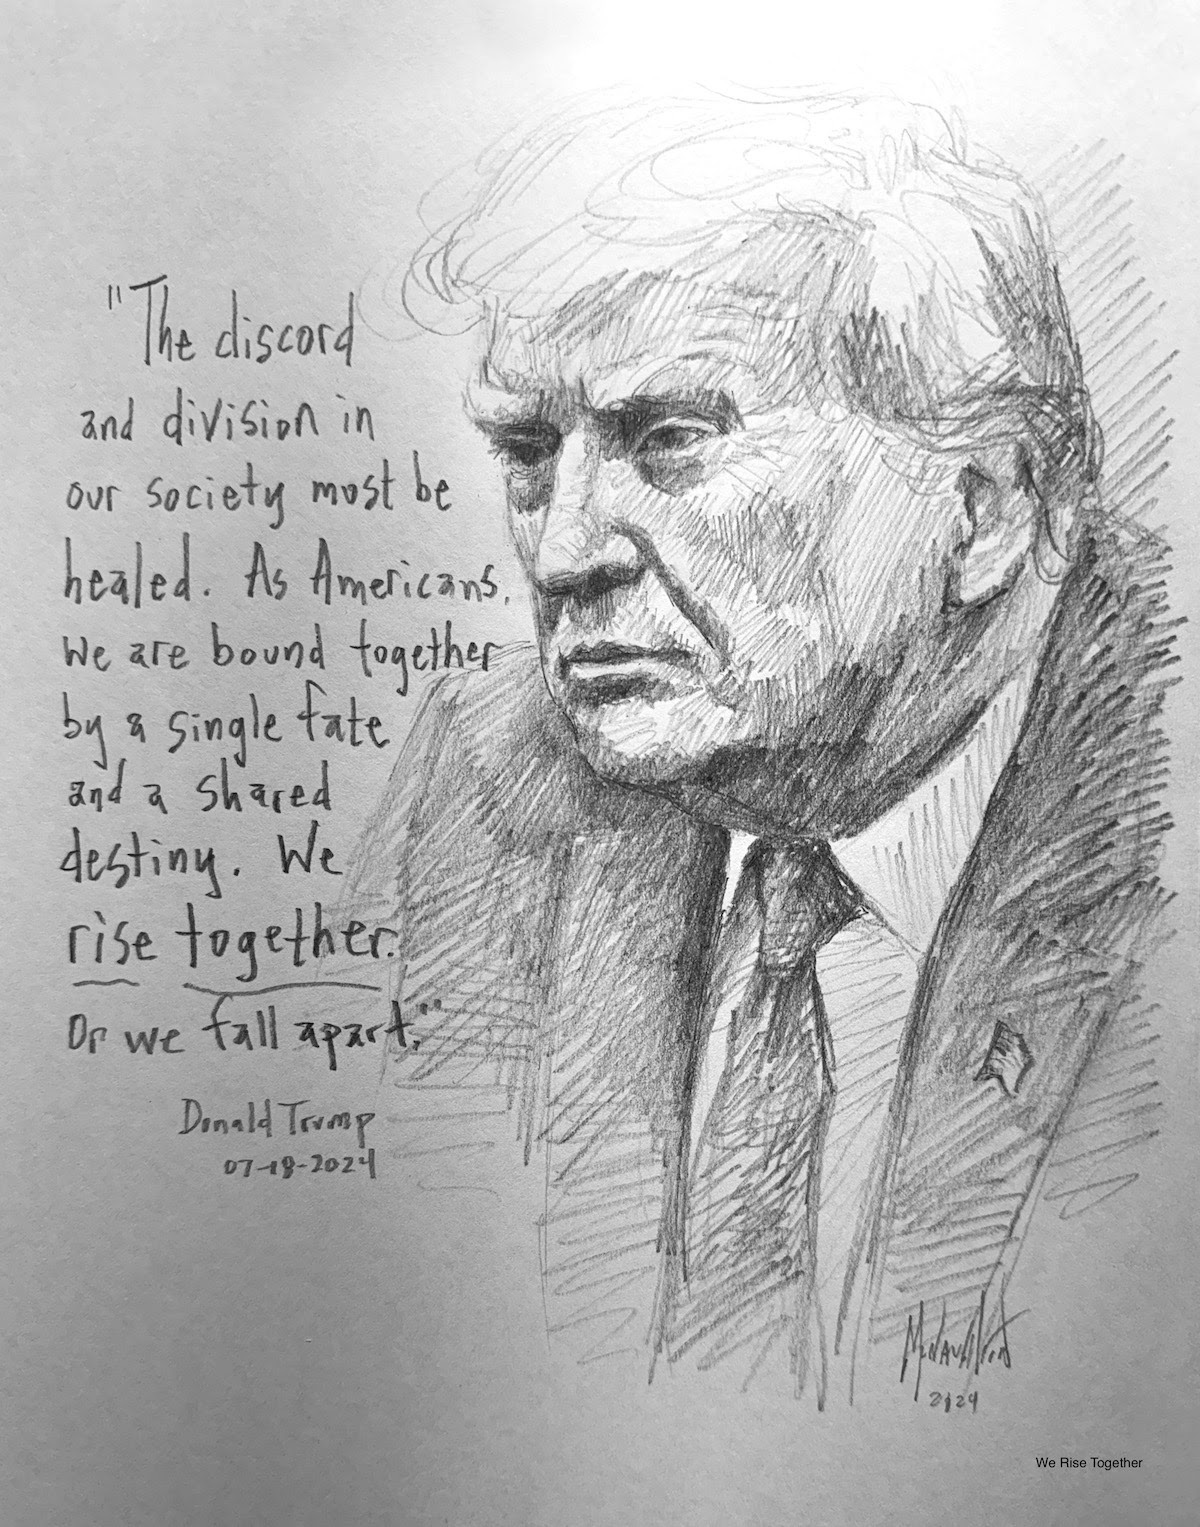 "The discord
and division in
our society must be
healed. As Americans,
we are bound together
by a single fate
and a shared
destiny. We
rise together.
Or we fall apart."
Donald Trump
07-18-2024
McNaughton
2024
We Rise Together